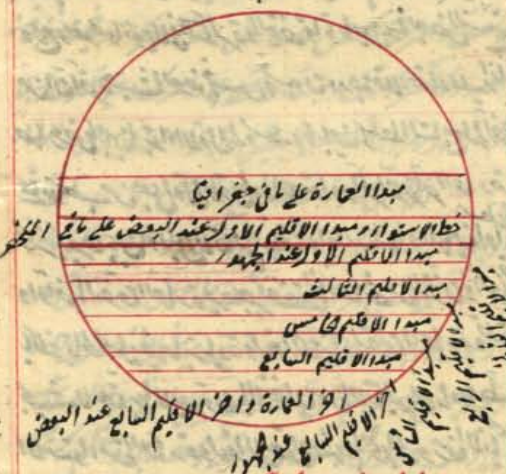 مبدا العمارة على ما فى جغرافيا
خط الاستواء و مبدا الاقليم الاول عند البعض على ما فى
مبدا الاقليم الاول عند الجمهور
مبدا الاقليم الثالث
مبدا الاقليم خامس
مبدا الاقليم السابع
اخر العمارة و اخر الاقليم السابع عند البعض
اخر الاقليم السابع عند جمهور
مبدا الاقليم السادس
مبدا الاقليم الرابع
مبدا الاقليم الثانى